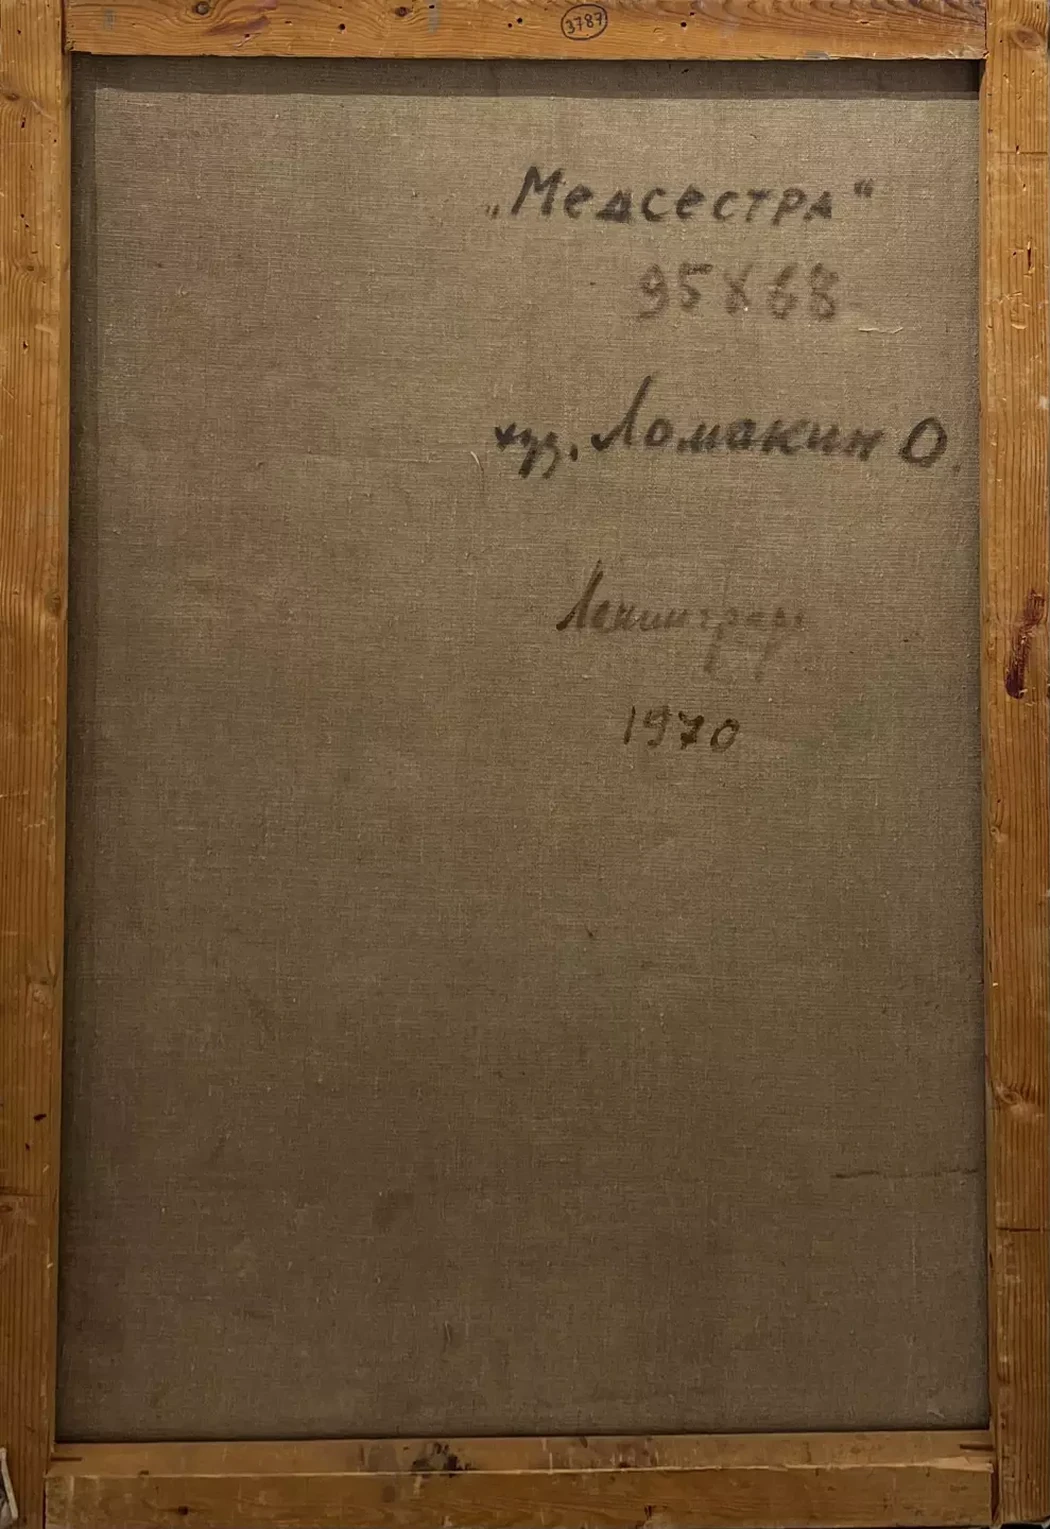 3787
„Медсестра“
95X68
худ. Ломакин О.
Ленинград
1970